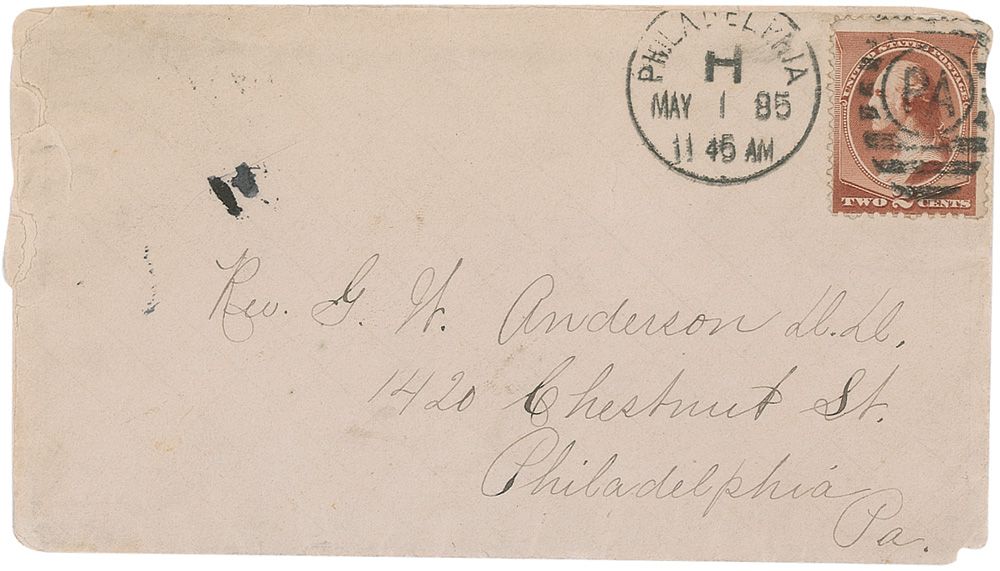 PHILADELPHIA
H
MAY 1 85
11 45 AM
UNITED STATES POSTAGE
PA
TWO 2 CENTS
Rev. G. W. Anderson D.D.,
1420 Chestnut St.
Philadelphia
Pa.